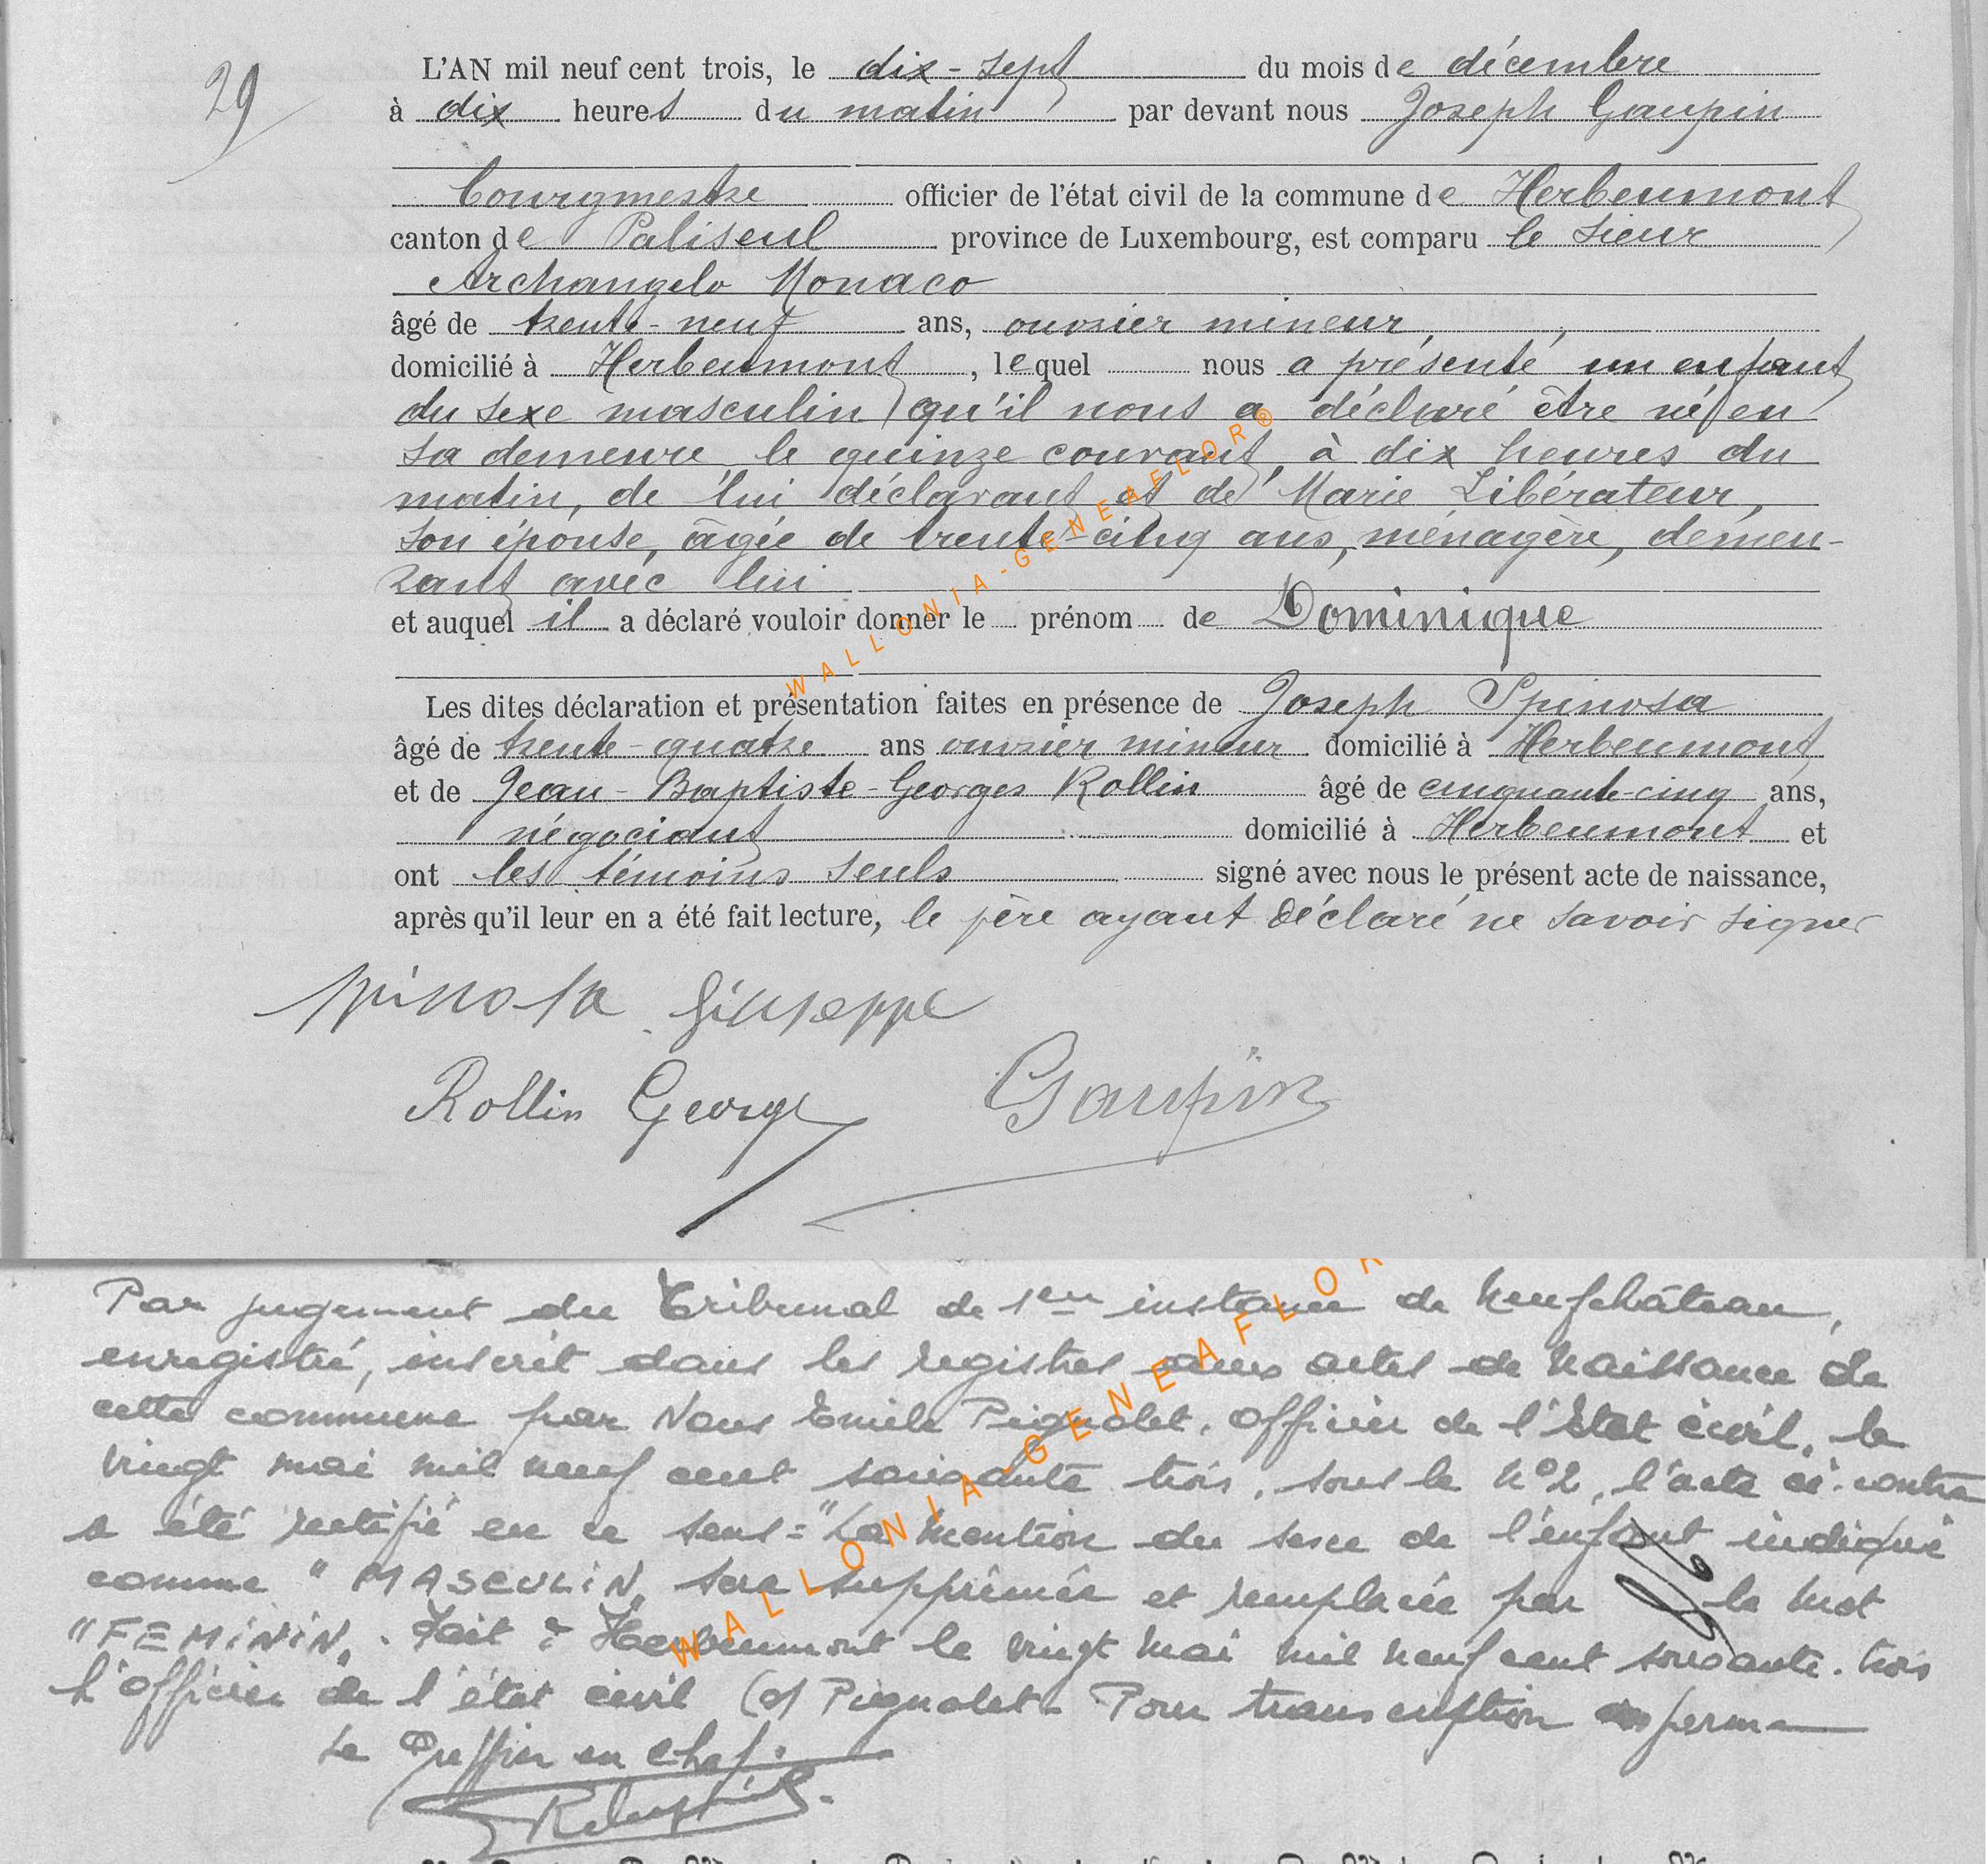 29
L'AN mil neuf cent trois, le dix-sept du mois de décembre
à dix heures du matin par devant nous Joseph Gaupin
bourgmestre officier de l'état civil de la commune de Herbeumont
canton de Paliseul province de Luxembourg, est comparu le sieur
Archangelo Monaco
âgé de trente-neuf ans, ouvrier mineur,
domicilié à Herbeumont, lequel nous a présenté un enfant
du sexe masculin qu'il nous a déclaré être né en
sa demeure, le quinze courant, à dix heures du
matin, de lui déclarant et de Marie Libérateur,
son épouse, âgée de trente-cinq ans, ménagère, demeu-
rant avec lui
et auquel il a déclaré vouloir donner le prénom de Dominique
Les dites déclaration et présentation faites en présence de Joseph Spinosa
âgé de trente-quatre ans ouvrier mineur domicilié à Herbeumont
et de Jean-Baptiste-Georges Rollin âgé de cinquante-cinq ans,
négociant domicilié à Herbeumont et
ont les témoins seuls signé avec nous le présent acte de naissance,
après qu'il leur en a été fait lecture, le père ayant déclaré ne savoir signer
Spinosa Giuseppe
Rollin George Gaupin
WALLONIA-GENEAFLOR®
Par jugement du Tribunal de 1ère instance de Neufchâteau,
enregistré, inscrit dans les registres aux actes de naissance de
cette commune par Nous Emile Pignolet, Officier de l'Etat civil, le
vingt mai mil neuf cent soixante trois, sous le N°2, l'acte ci-contre
a été rectifié en ce sens = "La mention du sexe de l'enfant indiqué
comme "MASCULIN" sera supprimée et remplacée par le mot
"FEMININ". Fait à Herbeumont le vingt mai mil neuf cent soixante-trois
L'officier de l'état civil (s) Pignolet - Pour transcription conforme
Le Greffier en Chef.
WALLONIA-GENEAFLOR